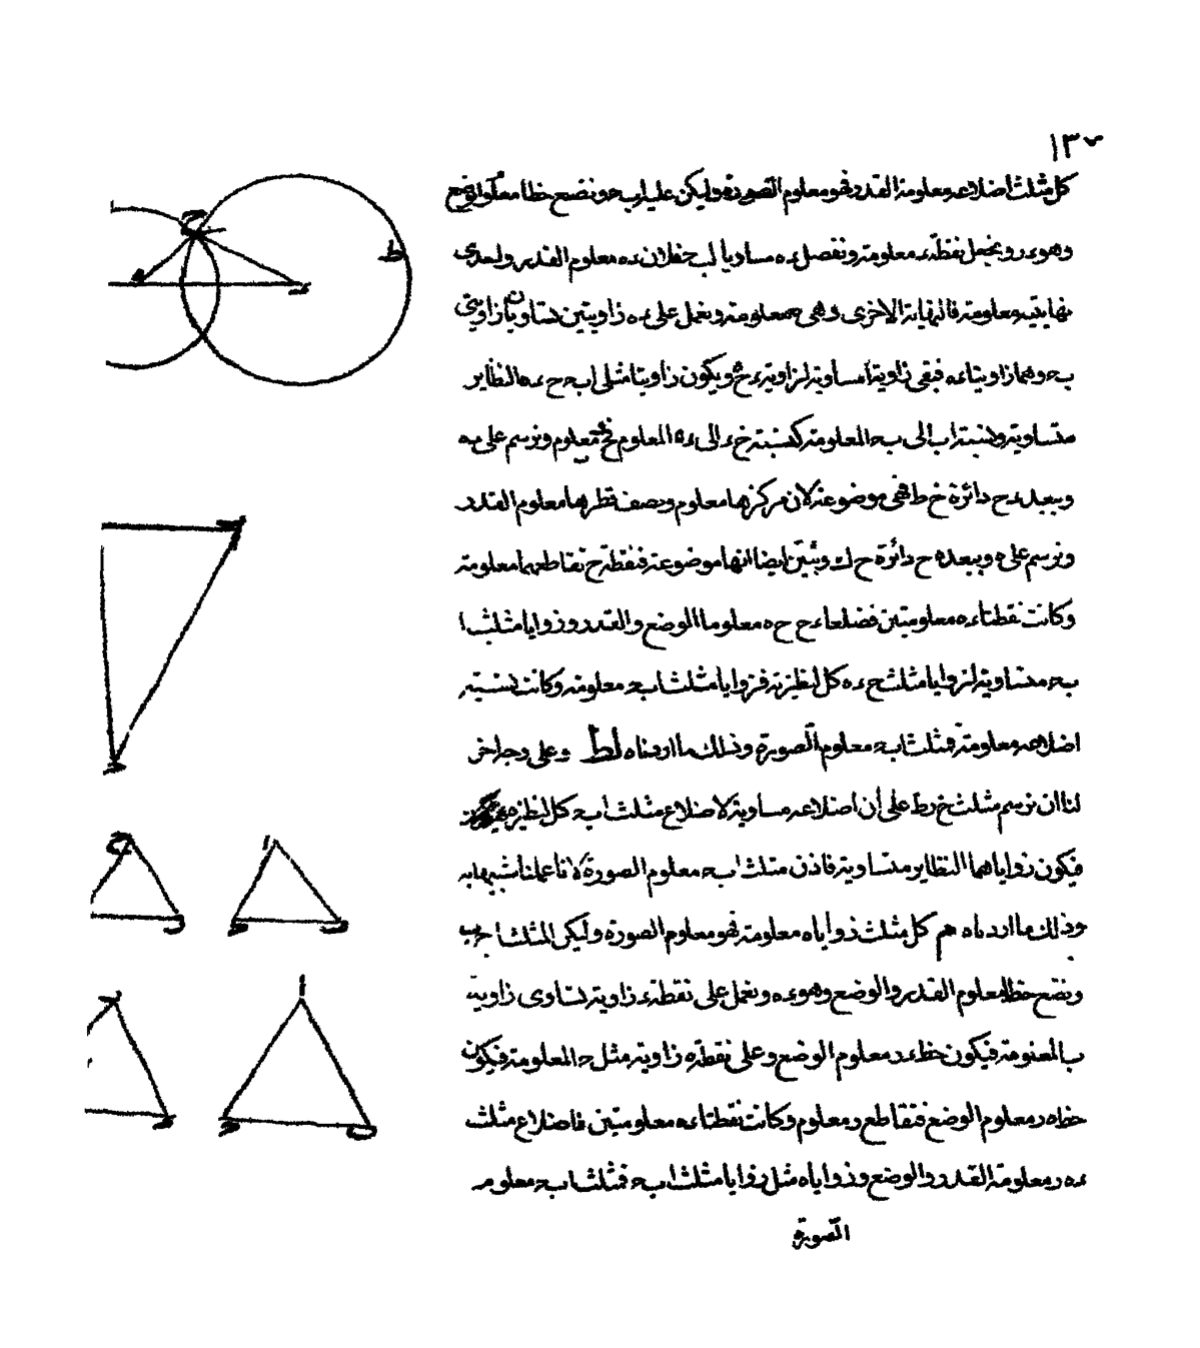 ١٣٧
كل مثلث اضلاعه معلومة القدر فهو معلوم الصورة وليكن عليه اب حـ ونضع خطا معلوم الوضع
وهو ء ر ونجعل نقطة ء معلومة ونفصل ء ه مساويا لب حـ فلان ء ه معلوم القدر واحدى
نهايتيه معلومة فالنهاية الاخرى وهى ه معلومة ونعمل على ء ه زاويتين تساويان زاويتى
ب حـ وهما زاويتا ء ه فبقى زاوية ا مساوية لزاوية ح ويكون زاويتا مثلثى اب حـ ح ء ه النظاير
متساوية ونسبة اب الى ب حـ المعلومة كنسبة ح ء الى ء ه المعلوم فح ء معلوم ونرسم على ء
وببعد ء ح دائرة ح ط فهى موضوعة لان مركزها معلوم ونصف قطرها معلوم القدر
ونرسم على ه وببعد ه ح دائرة ح ك ونبين ايضا انها موضوعة فنقطة ح تقاطعهما معلومة
وكانت نقطتا ء ه معلومتين فضلعا ء ح ح ه معلوما الوضع والقدر وزوايا مثلث ا
ب حـ متساوية لزوايا مثلث ح ء ه كل لنظيرته فزوايا مثلث اب حـ معلومة وكانت نسبة
اضلاعه معلومة فمثلث اب حـ معلوم الصورة وذلك ما اردناه لط وعلى وجه اخر
لنا ان نرسم مثلث ح ر ط على ان اضلاعه مساوية لاضلاع مثلث اب حـ كل لنظيره
فيكون زواياهما النظاير متساوية فاذن مثلث اب حـ معلوم الصورة لانا عملنا شبيها به
وذلك ما اردناه م كل مثلث زواياه معلومة فهو معلوم الصورة وليكن المثلث ا حـ ب
ونضع خطا معلوم القدر والوضع وهو ء ه ونعمل على نقطة ء زاوية تساوى زاوية
ب المعلومة فيكون خط ء ر معلوم الوضع وعلى نقطة ه زاوية مثل حـ المعلومة فيكون
خط ه ر معلوم الوضع فتقاطع ر معلوم وكانت نقطتا ء ه معلومتين فاضلاع مثلث
ء ه ر معلومة القدر والوضع وزواياه مثل زوايا مثلث اب حـ فمثلث اب حـ معلوم
الصورة